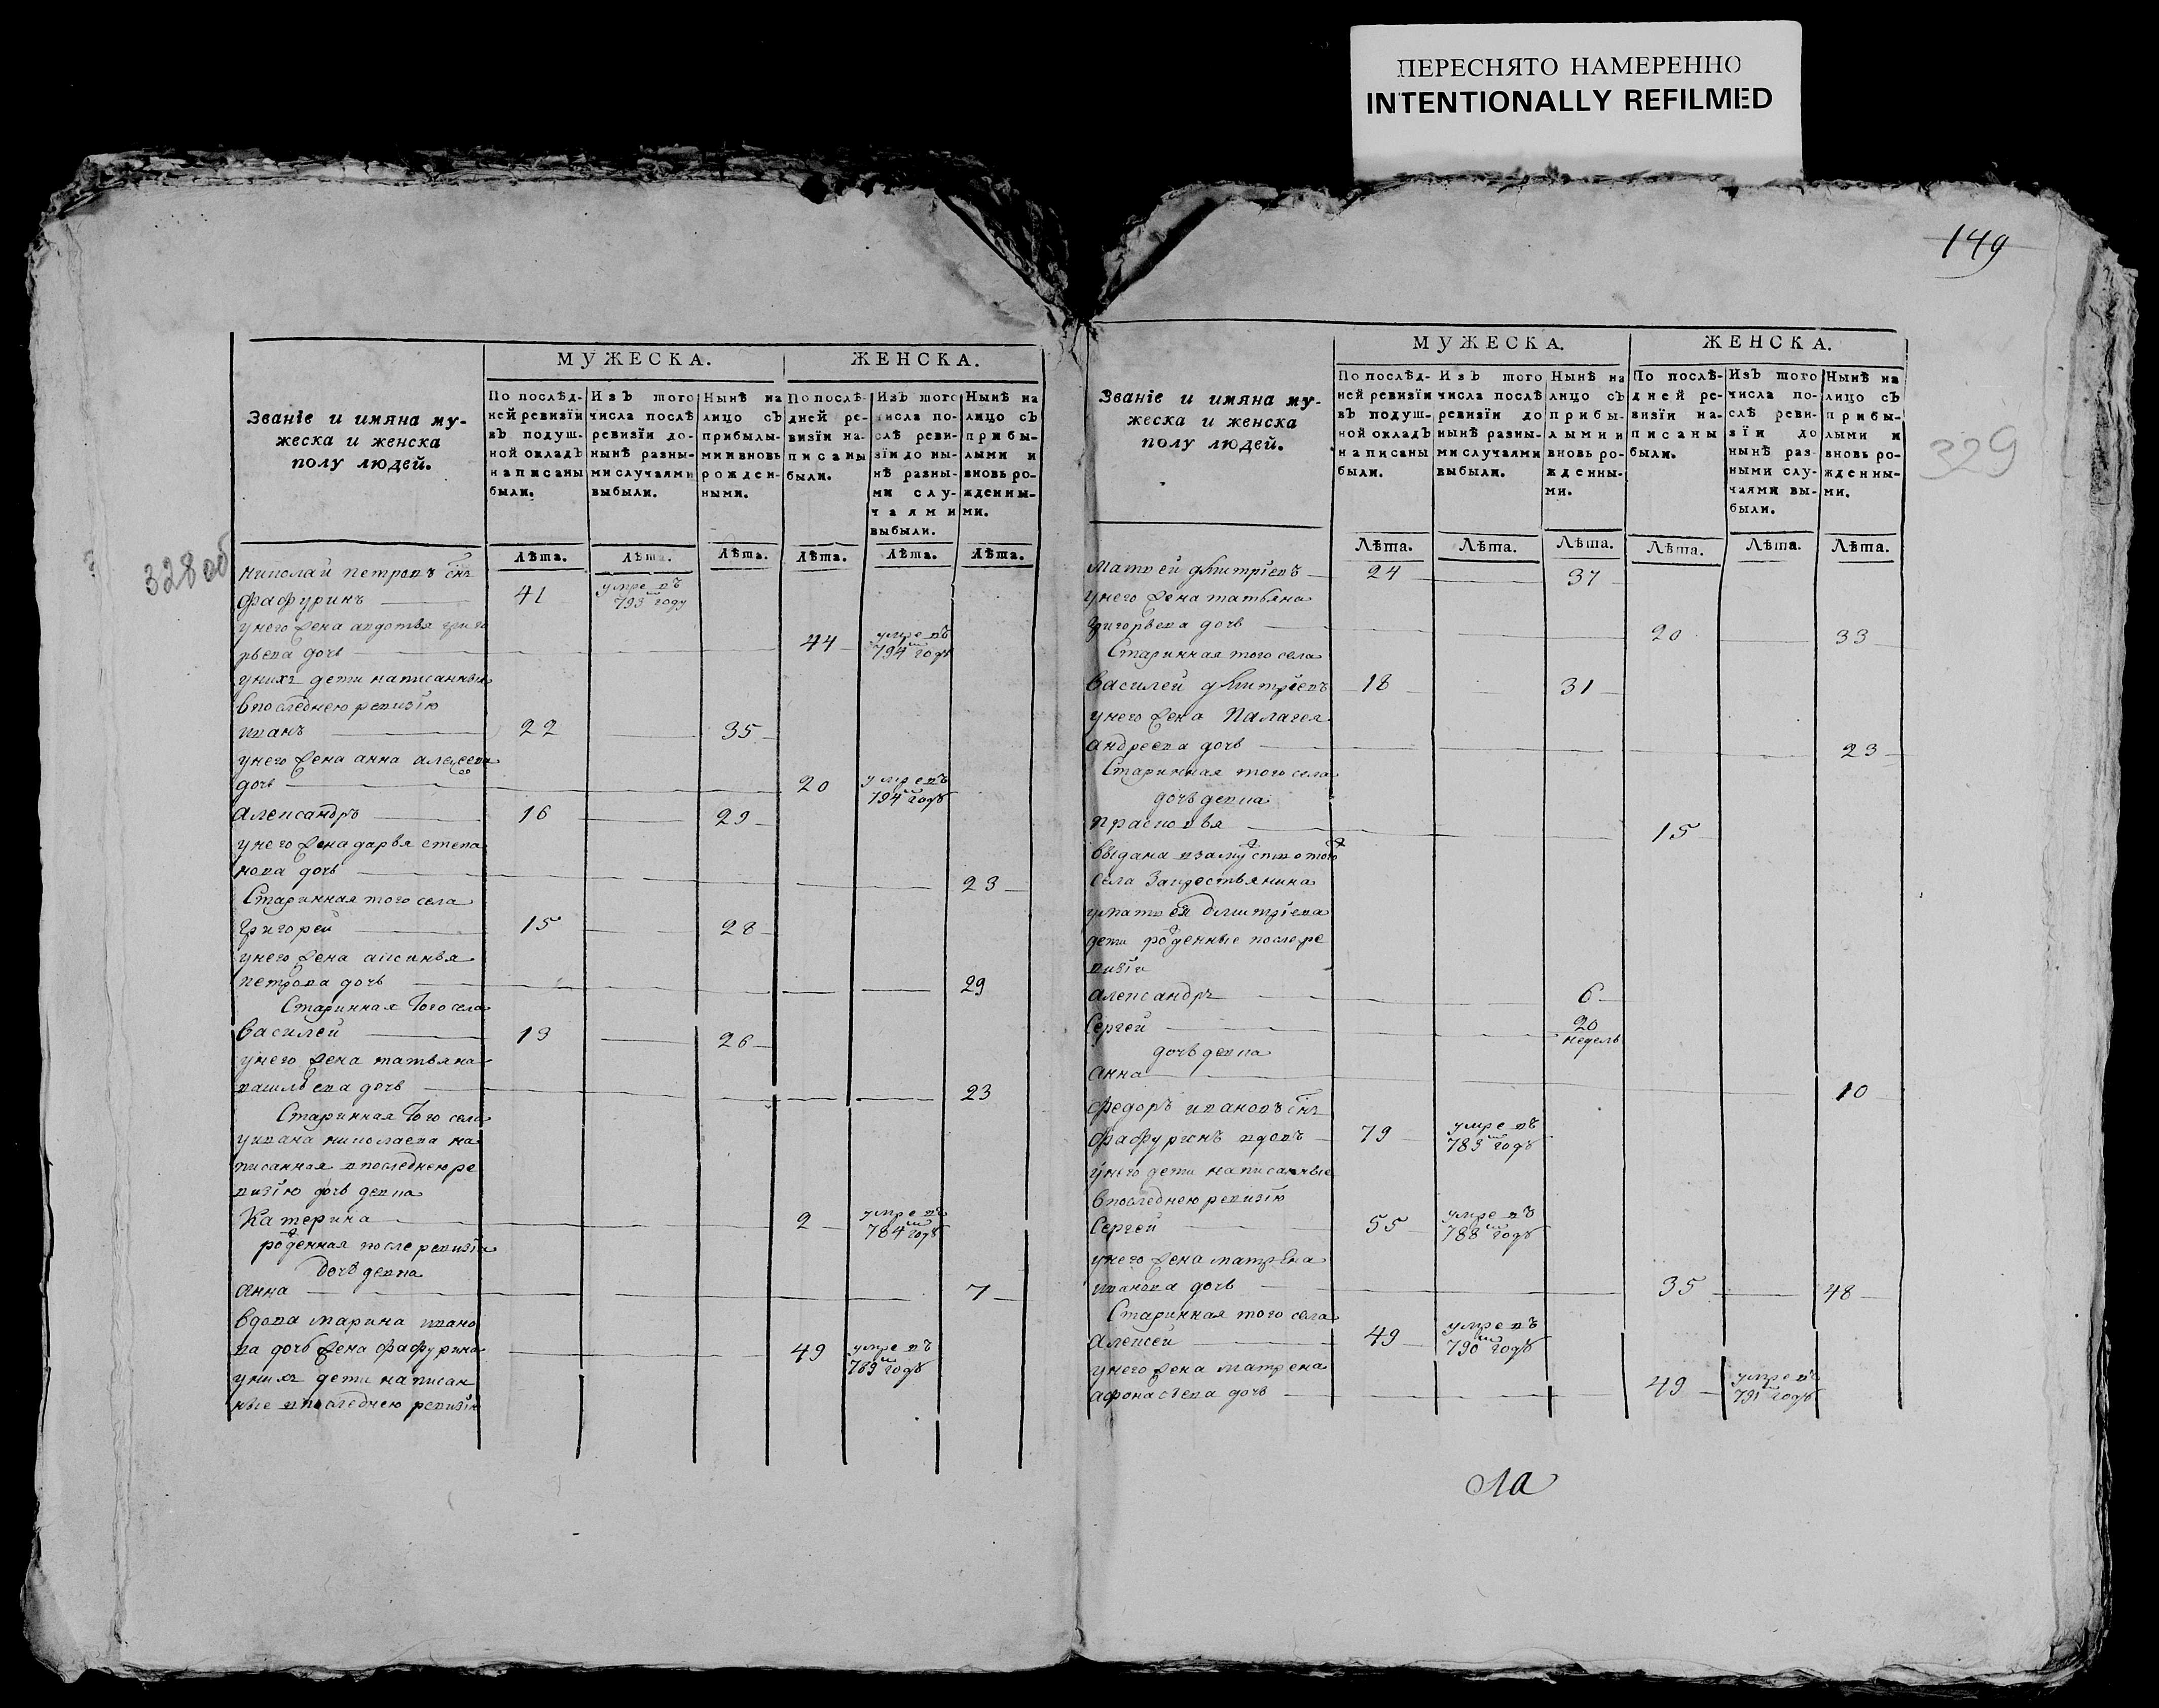 ПЕРЕСНЯТО НАМЕРЕННО
INTENTIONALLY REFILMED
149
329
328 об
Званіе и имяна му-
жеска и женска
полу людей.
МУЖЕСКА.
ЖЕНСКА.
По послѣд-
ней ревизїи
въ подуш-
ной окладъ
написаны
были.
Изъ того
числа послѣ
ревизїи до-
нынѣ разны-
ми случаями
выбыли.
Нынѣ на
лицо съ
прибылы-
ми и вновь
рожден-
ными.
По послѣ-
дней ре-
визїи на-
писаны
были.
Изъ того
числа по-
слѣ реви-
зїи до ны-
нѣ разны-
ми слу-
чаями
выбыли.
Нынѣ на
лицо съ
прибы-
лыми и
вновь ро-
жденны-
ми.
Лѣта. Лѣта. Лѣта. Лѣта. Лѣта. Лѣта.
николай петровъ сн̃ъ
фафуринъ 41 умре въ 793м году
у него жена авдотья григо
рьева дочь 44 умре въ 794м годѣ
у нихъ дети написанныя
в последнею ревизїю
иванъ 22 35
у него жена анна алексеева
дочь 20 умре въ 794м годѣ
александръ 16 29
у него жена дарья степа
нова дочь 23
Старинная того села
григорей 15 28
у него жена аксинья
петрова дочь 29
Старинная того села
василей 13 26
у него жена татьяна
дочь 23
Старинная того села
у ивана николаева на
писанная в последнею ре
визїю дочь девка
Катерина 2 умре въ 784м годѣ
рожденная после ревизїи
дочь девка
анна 7
вдова марина ивано
ва дочь жена фафурина 49 умре въ 789м годѣ
у них дети написан
ные в последнею ревизїю
Званіе и имяна му-
жеска и женска
полу людей.
МУЖЕСКА.
ЖЕНСКА.
По послѣд-
ней ревизїи
въ подуш-
ной окладъ
написаны
были.
Изъ того
числа послѣ
ревизїи до
нынѣ разны-
ми случаями
выбыли.
Нынѣ на
лицо съ
прибы-
лыми и
вновь ро-
жденны-
ми.
По послѣ-
дней ре-
визїи на-
писаны
были.
Изъ того
числа по-
слѣ реви-
зїи до
нынѣ раз-
ными слу-
чаями вы-
были.
Нынѣ на
лицо съ
прибы-
лыми и
вновь ро-
жденны-
ми.
Лѣта. Лѣта. Лѣта. Лѣта. Лѣта. Лѣта.
матвей дмитрїевъ 24 37
у него жена татьяна
григорьева дочь 20 33
Старинная того села
василей дмитрїевъ 18 31
у него жена Палагея
андреева дочь 23
Старинная того села
дочь девка
прасковья 15
выдана взамужство того ж
села за крестьянина
у матвея дмитрїева
дети рожденные после ре
визїи
александръ 6
Сергей 20 недель
дочь девка
анна 10
федоръ ивановъ сн̃ъ
фафуринъ вдовъ 79 умре въ 783м годѣ
у него дети написанные
в последнею ревизїю
Сергей 55 умре въ 788м годѣ
у него жена матрена
иванова дочь 35 48
Старинная того села
алексей 49 умре въ 790м годѣ
у него жена матрена
афонасьева дочь 49 умре въ 791м годѣ